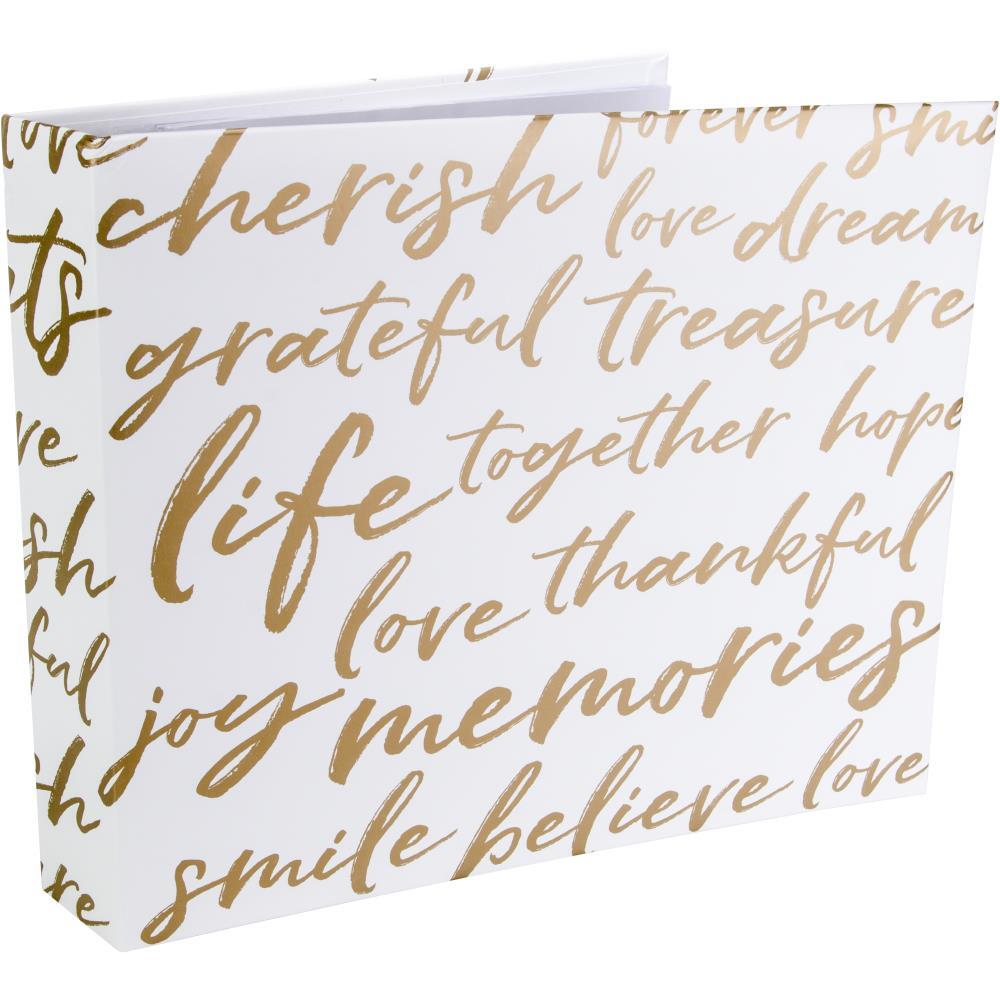 love
cherish forever smi
love dream
grateful treasure
life together hope
love thankful
joy memories
smile believe love
ts
ve
sh
ful
sh
ure